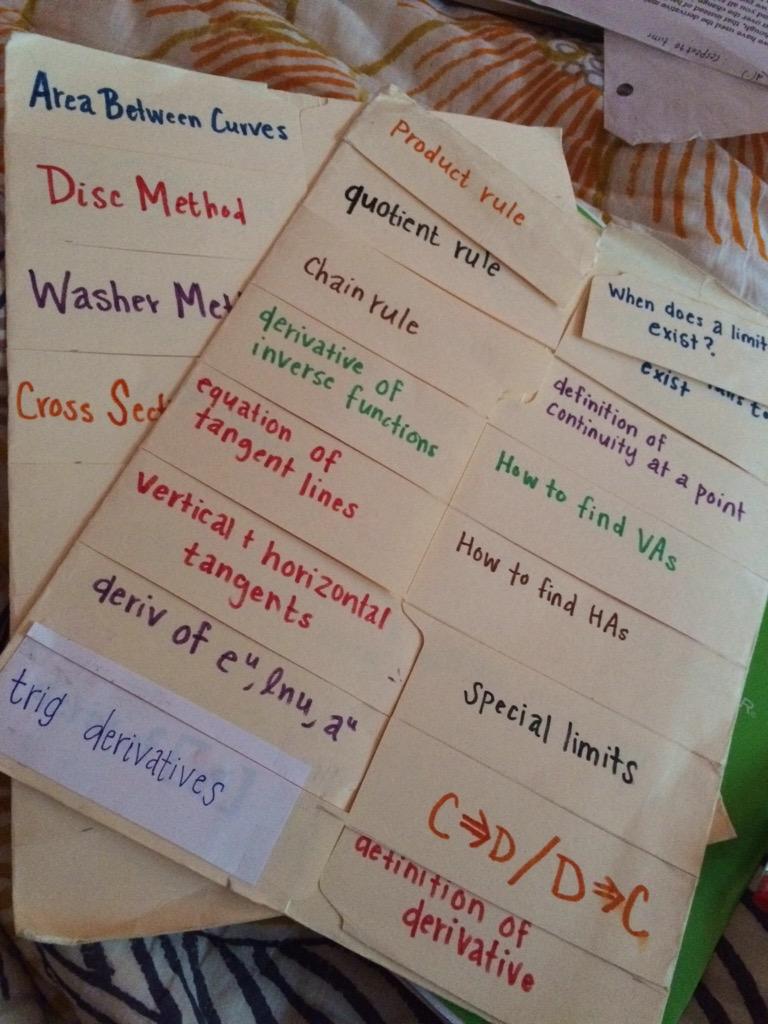 Area Between Curves
Disc Method
Washer
Cross
Product rule
quotient rule
Chain rule
derivative of
inverse functions
equation of
tangent lines
vertical + horizontal
tangents
deriv of eᵘ, lnu, aᵘ
trig derivatives
When does a limit
exist?
exist
definition of
continuity at a point
How to find VAs
How to find HAs
special limits
C⇒D/D⇒C
definition of
derivative
respect to time